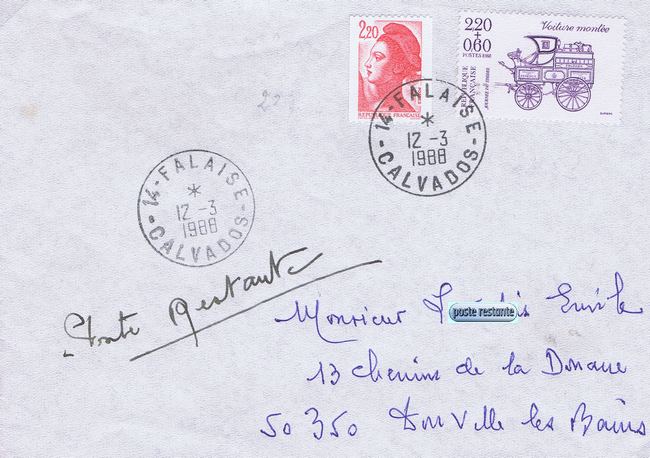 2,20
REPUBLIQUE FRANÇAISE
2,20
+
0,60
POSTES 1988
Voiture montée
REPUBLIQUE FRANÇAISE
JOURNEE DU TIMBRE
14-FALAISE
*
12-3
1988
-CALVADOS-
14-FALAISE
*
12-3
1988
-CALVADOS-
Poste Restante
Monsieur Emile
poste restante
13 Chemins de la Douane
50350 Donville les Bains